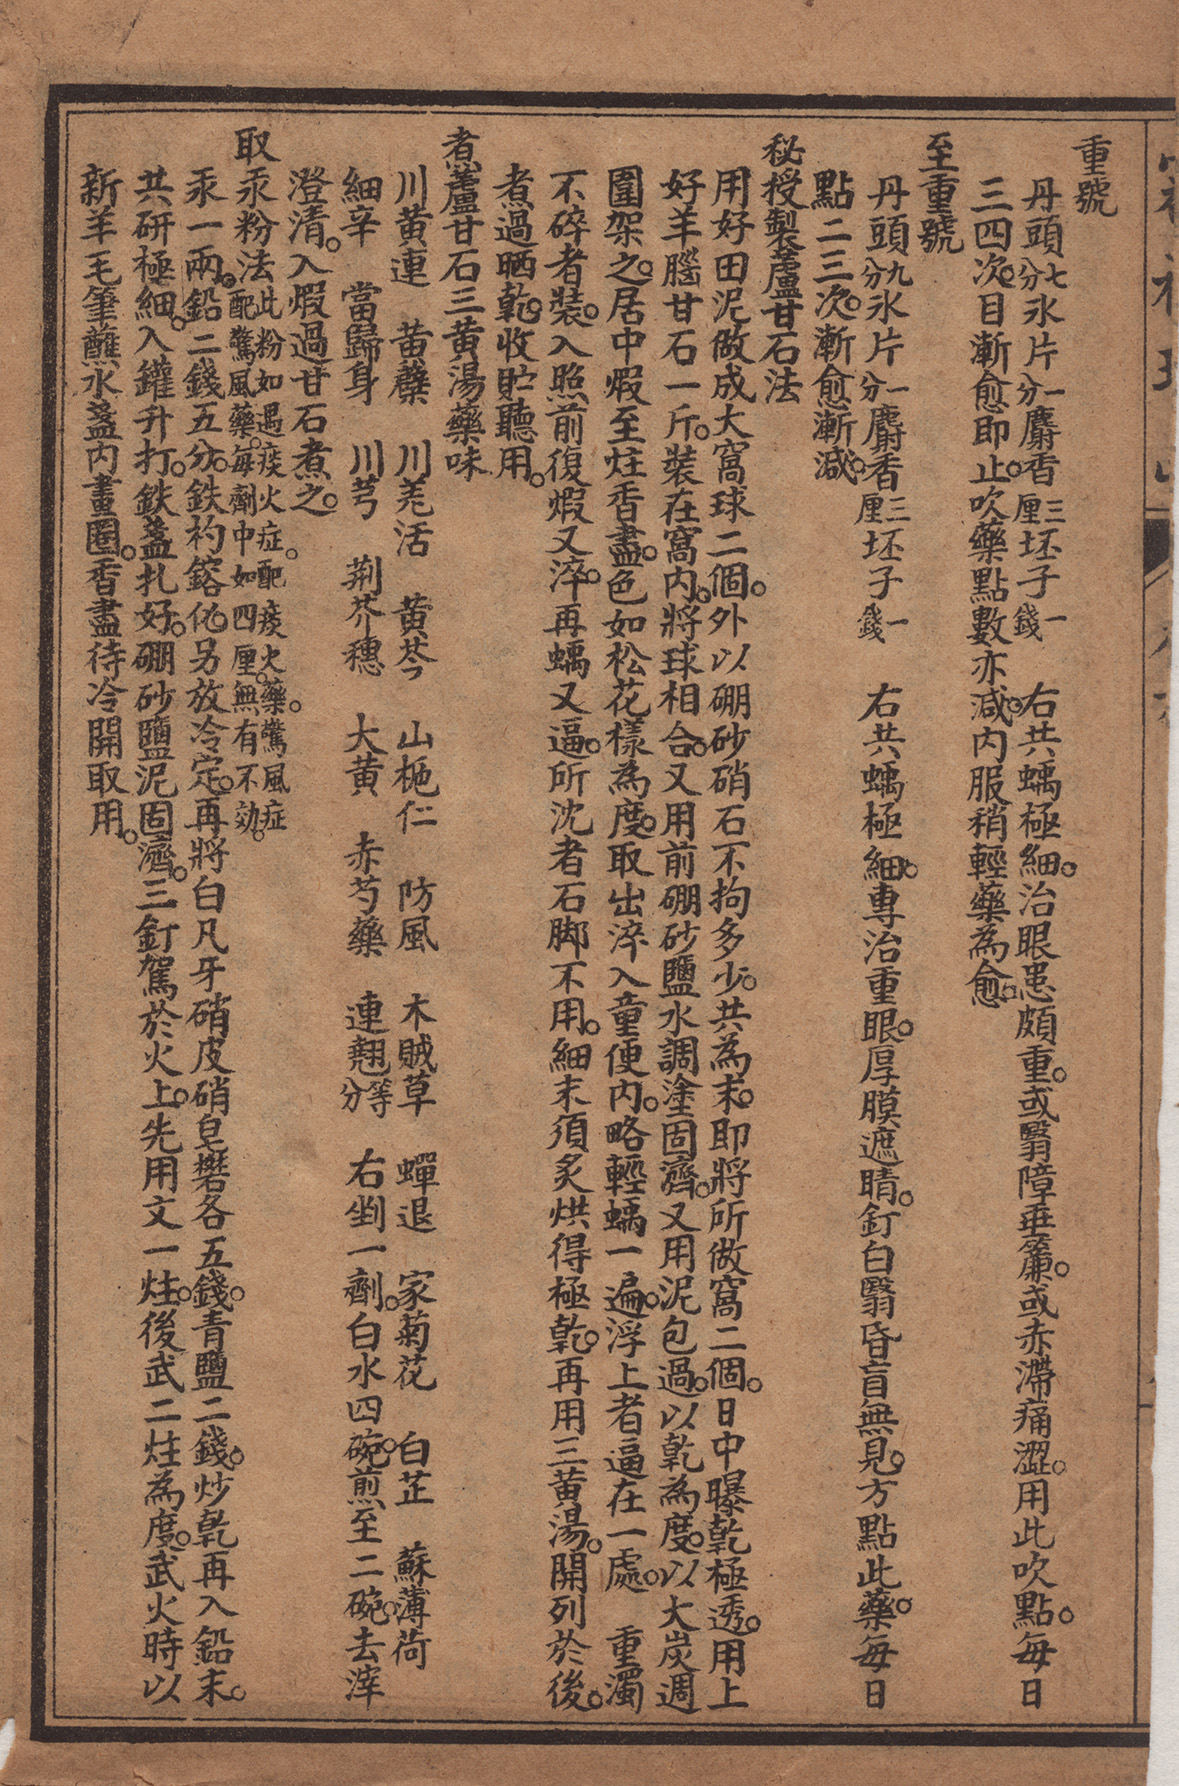 重號
丹頭七分氷片一分麝香三厘坯子一錢　右共蝺極細。治眼患頗重。或翳障垂簾。或赤滯痛澀。用此吹點。每日
三四次。目漸愈即止。吹藥點數亦減。內服稍輕藥為愈。
至重號
丹頭九分氷片一分麝香三厘坯子一錢　右共蝺極細。專治重眼。厚膜遮睛。釘白翳昏盲無見。方點此藥。每日
點二三次。漸愈漸減。
秘授製蘆甘石法
用好田泥做成大窩球二個。外以硼砂硝石不拘多少。共為末。即將所做窩二個。日中曝乾極透。用上
好羊腦甘石一斤。裝在窩內。將球相合。又用前硼砂鹽水調塗固濟。又用泥包過。以乾為度。以大炭週
圍架之。居中煆至炷香盡。色如松花樣為度。取出淬入童便內。略輕蝺一遍。浮上者逼在一處。重濁
不碎者裝入照前復煆又淬。再蝺又逼。所沈者石脚不用。細末須炙烘得極乾。再用三黃湯。開列於後。
煮過晒乾。收貯聽用。
煮蘆甘石三黃湯藥味
川黃連　黃蘗　川羌活　黃芩　山梔仁　防風　木賊草　蟬退　家菊花　白芷　蘇薄荷
細辛　當歸身　川芎　荆芥穗　大黃　赤芍藥　連翹等分　右剉一劑。白水四碗。煎至二碗。去滓
澄清。入煆過甘石煮之。
取汞粉法此粉如遇痰火症。配痰火藥。驚風症配驚風藥。每劑中如四厘。無有不効。
汞一兩。鉛二錢五分。鉄杓鎔化。另放冷定。再將白凡牙硝皮硝皂礬各五錢。青鹽二錢。炒乾再入鉛末。
共研極細。入罐升打。鉄盞扎好。硼砂鹽泥固濟。三釘駕於火上。先用文一炷。後武二炷為度。武火時以
新羊毛筆蘸水盞內畫圈。香盡待冷開取用。